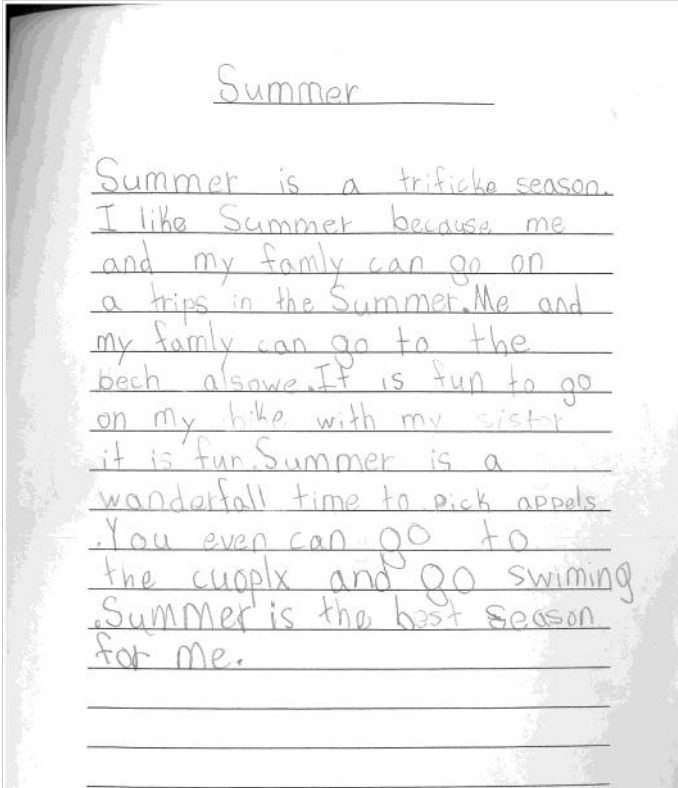 Summer
Summer is a trificke season.
I like Summer because me
and my famly can go on
a trips in the Summer.Me and
my famly can go to the
bech alsowe.It is fun to go
on my bike with my sistor
it is fun.Summer is a
wanderfall time to pick appels
.You even can go to
the cuoplx and go swiming
.Summer is the best season
for me.